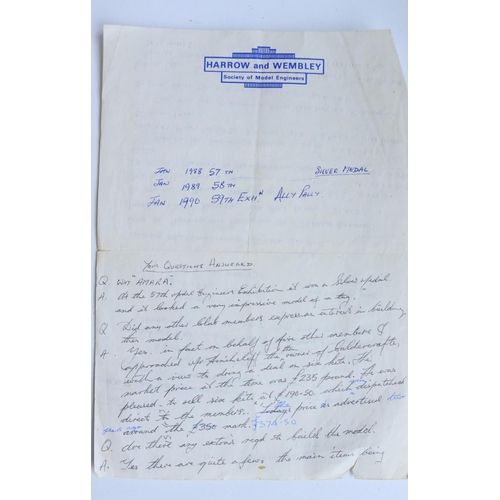 HARROW and WEMBLEY
Society of Model Engineers
JAN 1988 57TH SILVER MEDAL
JAN 1989 58TH
JAN 1990 59TH EXHN ALLY PALLY
YOUR QUESTIONS ANSWERED
Q. WHY "AMARA".
A. At the 57th Model Engineer Exhibition it won a Silver Medal.
and it looked a very impressive model of a tug.
Q Did any other Club members express interest in building
this model.
A Yes. in fact on behalf of five other members I
approached the owner of Caldercrafts,
with a view to doing a deal on six kits. The
market price at the time was £235 pound. He was
pleased to sell six kits at £190-50 which dispatched
direct to the members. Todays price as advertised
around the £350 mark. £374.50
Q. Are there any extra's reqd to build the model.
A. Yes there are quite a few, the main items being